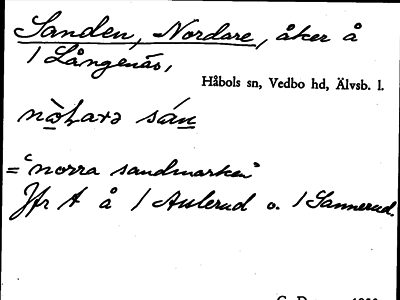 Sanden, Nordare, åker å
1 Långenäs,
Håbols sn, Vedbo hd, Älvsb. l.
sán
= "norra sandmarken"
Jfr A å 1 Aulerud o. 1 Sannerud.